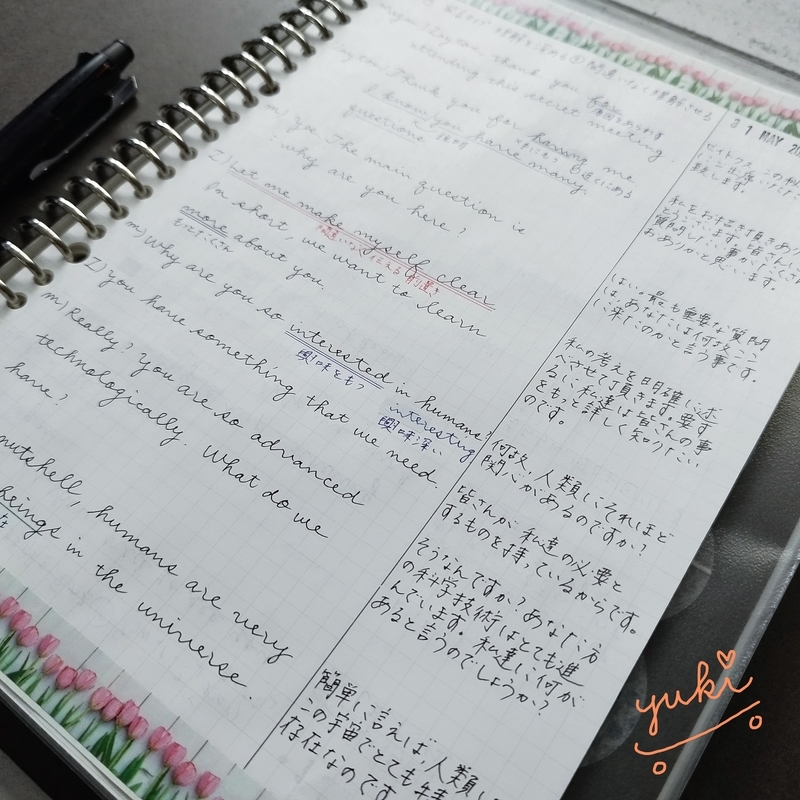 thank you for
attending this secret meeting.
Thank you for having me
I know you have many
questions
m) The main question is
why are you here?
Z) Let me make myself clear
In short, we want to learn
more about you.
もっとたくさん
m) Why are you so interested in humans?
興味をもつ
interesting
興味深い
Z) You have something that we need.
m) Really? You are so advanced
technologically. What do we
have?
nutshell, humans are very
beings in the universe.
31 MAY
私をお招き頂きあり
とうございます。皆さん
質問したい事がたくさん
おありかと思います。
はい。最も重要な質問
は、あなたは何故ここ
に来たのかと言う事です。
私の考えを明確に述
べさせて頂きます。要す
るに、私達は皆さんの事
をもっと詳しく知りたい
のです。
何故、人類にそれほど
関心があるのですか?
皆さんが私達の必要と
するものを持っているからです。
そうなんですか?あなた方
の科学技術はとても進
んでいます。私達に何が
あると言うのでしょうか?
簡単に言えば、人類は
この宇宙でとても特
存在なのです
yuki